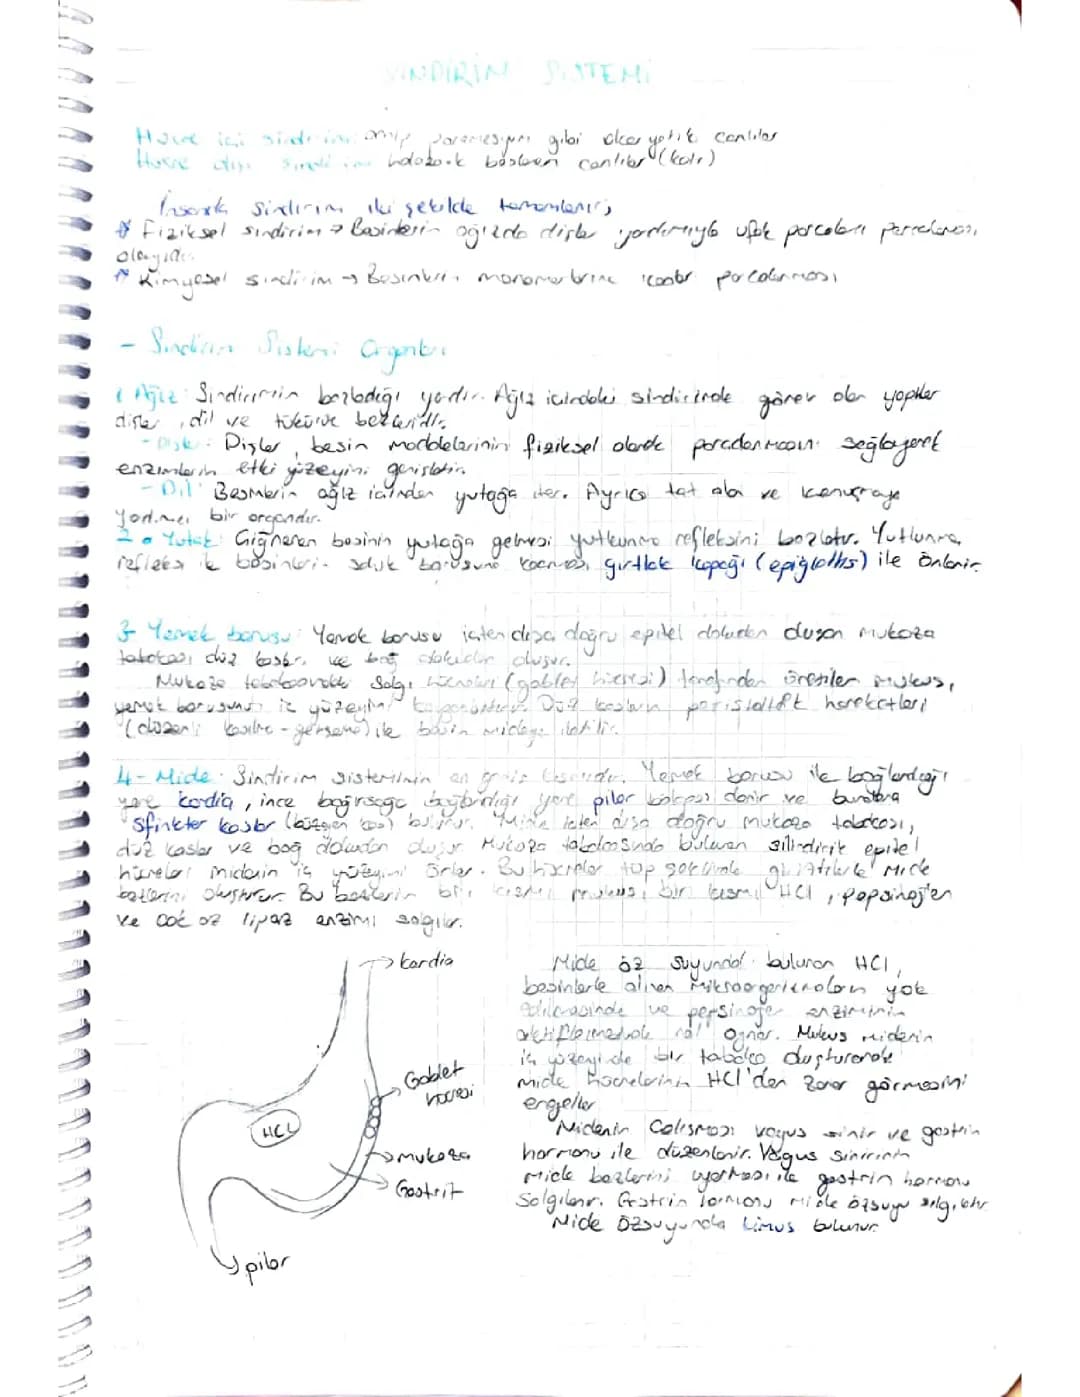 SİNDİRİM SİSTEMİ
Hücre içi sindirim: amip paramesyum gibi ökaryotik canlılar
Hücre dışı sindirim: holozoik beslenen canlılar (kalı)
İnsanda sindirim iki şekilde tamamlanır;
* Fiziksel sindirim → Besinlerin ağızda dişler yardımıyla ufak parçaları parçalanması
olayıdır.
* Kimyasal sindirim → Besinlerin monomerlerine kadar parçalanması
- Sindirim Sistemi Organları
1 Ağız: Sindirimin başladığı yerdir. Ağız içindeki sindirimde görev alan yapılar
dişler, dil ve tükürük bezleridir.
- Dişler: Dişler, besin maddelerinin fiziksel olarak parçalanmasını sağlayarak
enzimlerin etki yüzeyini genişletir.
- Dil: Besinlerin ağız içinden yutağa iter. Ayrıca tat alma ve konuşmaya
yardımcı bir organdır.
2- Yutak: Çiğnenen besinin yutağa gelmesi yutkunma refleksini başlatır. Yutkunma
refleksi ile besinlerin soluk borusuna kaçması gırtlak kapağı (epiglottis) ile önlenir.
3- Yemek borusu: Yemek borusu içten dışa doğru epitel dokudan oluşan mukoza
tabakası düz kaslar ve bağ dokudan oluşur.
Mukoza tabakasındaki salgı hücreleri (goblet hücresi) tarafından üretilen mukus,
yemek borusunun iç yüzeyini kayganlaştırır. Düz kasların peristaltik hareketleri
(düzenli kasılma - gevşeme) ile besin mideye iletilir.
4- Mide: Sindirim sisteminin en geniş kısmıdır. Yemek borusu ile bağlandığı
yere kardia, ince bağırsağa bağlandığı yere pilor bölgesi denir ve buralara
sfinkter kaslar (büzgen kas) bulunur. Mide içten dışa doğru mukoza tabakası,
düz kaslar ve bağ dokudan oluşur. Mukoza tabakasında bulunan silindirik epitel
hücreler midenin iç yüzeyini örter. Bu hücreler tüp şeklinde Mide
bezlerini oluşturur. Bu bezlerin bir kısmı mukus, bir kısmı HCl, pepsinojen
ve çok az lipaz enzimi salgılar.
kardia
Goblet
hücresi
HCl
mukoza
Gastrit
pilor
Mide öz suyunda bulunan HCl,
besinlerle alınan mikroorganizmaların yok
edilmesinde ve pepsinojen enziminin
aktifleşmesinde rol oynar. Mukus midenin
iç yüzeyinde bir tabaka oluşturarak
mide hücrelerinin HCl'den zarar görmesini
engeller
Midenin Çalışması vagus sinir ve gastrin
hormonu ile düzenlenir. Vagus sinirinin
mide bezlerini uyarması ile gastrin hormonu
Salgılanır. Gastrin hormonu mide özsuyu salgılatır
Mide özsuyunda kimus bulunur.